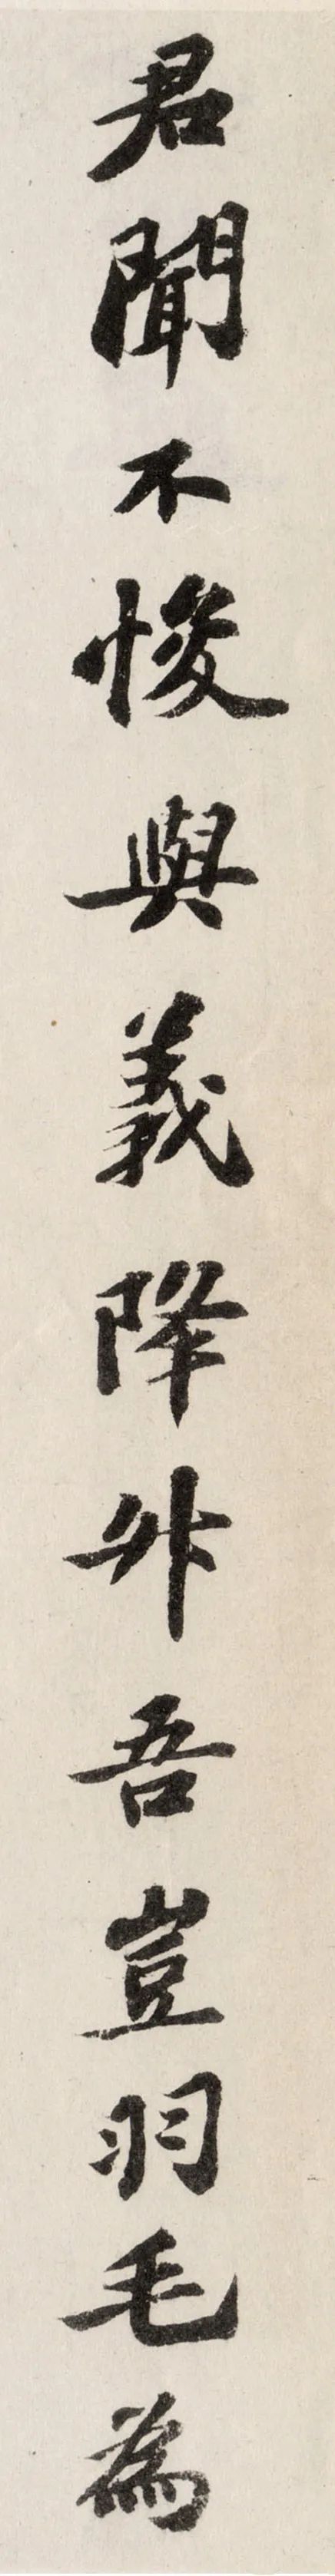 君聞不悛與義降升吾豈羽毛為